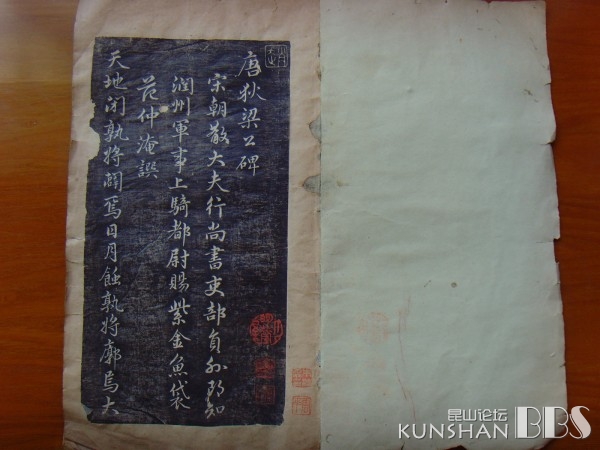 唐狄梁公碑
宋朝散大夫行尚書吏部員外郎知
潤州軍事上騎都尉賜紫金魚袋
范仲淹譔
天地閉孰將闢焉日月蝕孰將廓焉大
昆山论坛
KUNSHAN BBS